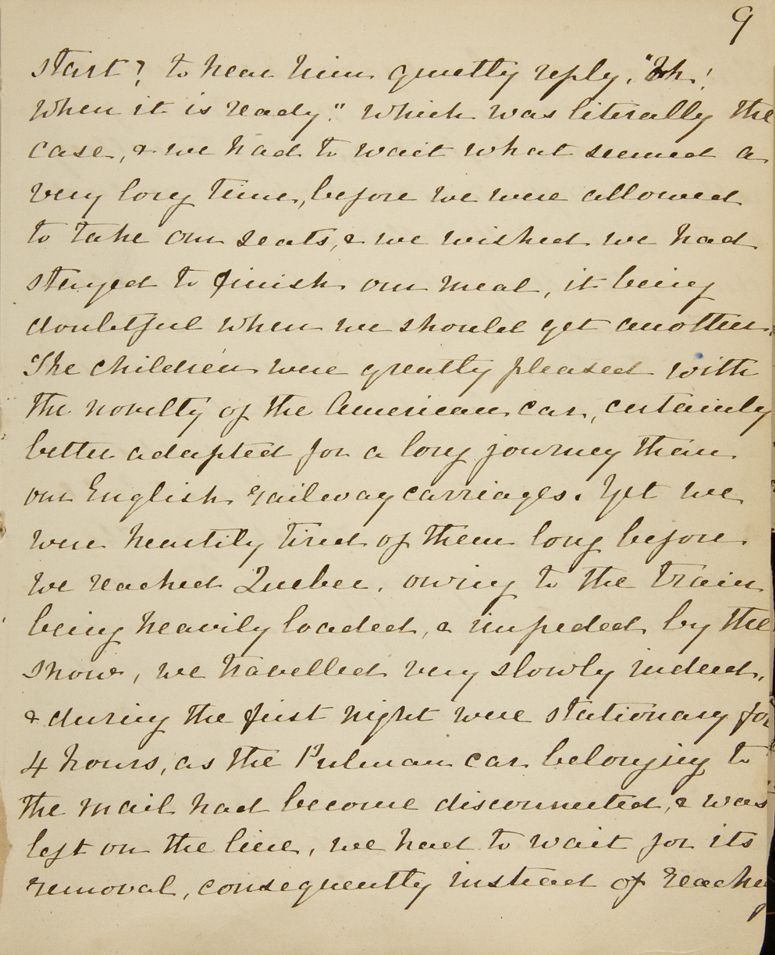 9
start? to hear him quietly reply, "Oh!
when it is ready." which was literally the
case, & we had to wait what seemed a
very long time, before we were allowed
to take our seats, & we wished we had
stayed to finish our meal, it being
doubtful when we should get another.
The children were greatly pleased with
the novelty of the American car, certainly
better adapted for a long journey than
our English railway carriages. Yet we
were heartily tired of them long before
we reached Quebec. owing to the train
being heavily loaded, & impeded by the
snow, we travelled very slowly indeed,
& during the first night were stationary for
4 hours, as the Pulman car belonging to
the mail had become disconnected, & was
left on the line, we had to wait for its
removal, consequently instead of reaching